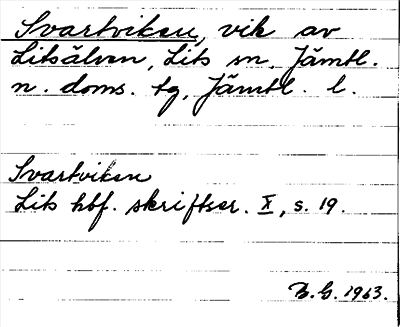 Svartviken, vik av
Litsälven, Lits sn, Jämtl.
n. doms. tg, Jämtl. l.
Svartviken
Lits hbf. skriftser. X, s. 19.
B.G. 1963.